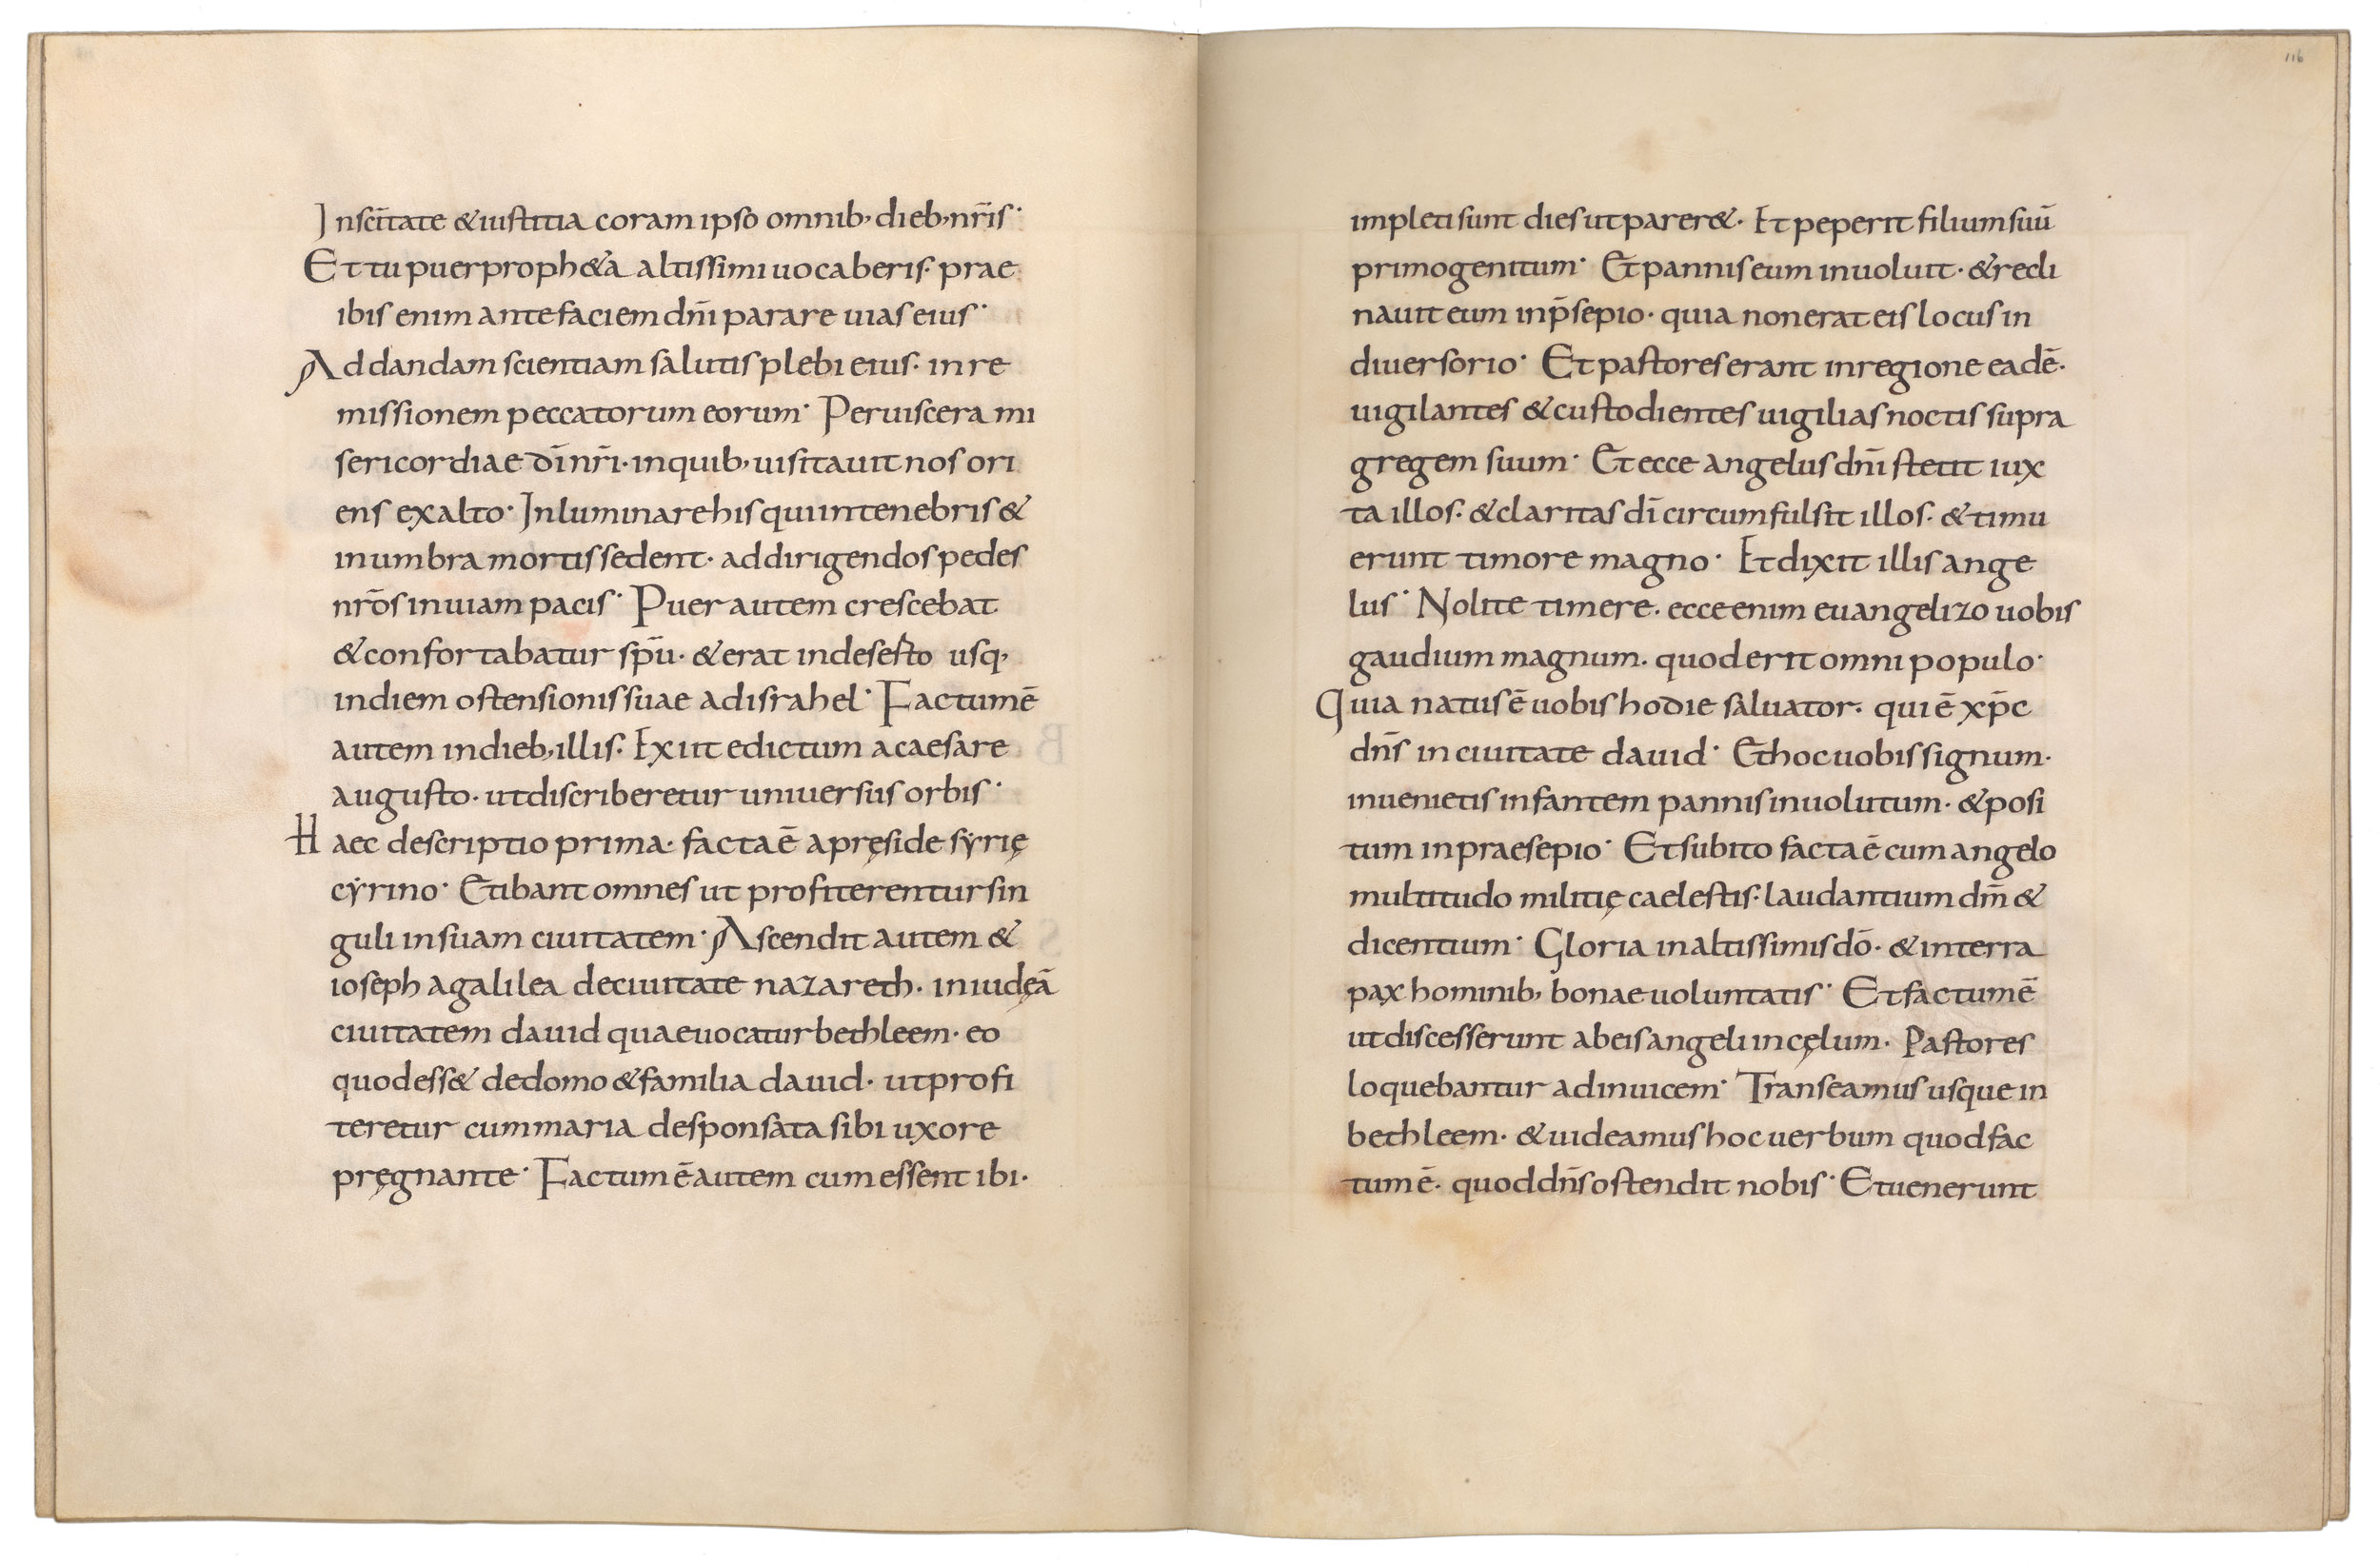 In sc̄itate & iustitia coram ipso omnib; dieb; nr̄is·
Et tu puer proph&a altissimi uocaberis· prae
ibis enim ante faciem dn̄i parare uias eius·
Ad dandam scientiam salutis plebi eius· in re
missionem peccatorum eorum· Per uiscera mi
sericordiae dī nr̄i· in quib; uisitauit nos ori
ens ex alto· Inluminare his qui in tenebris &
in umbra mortis sedent· ad dirigendos pedes
nrōs in uiam pacis· Puer autem crescebat
& confortabatur sp̄u· & erat in deserto usq;
in diem ostensionis suae ad israhel· Factum ē
autem in dieb; illis· Exiit edictum a caesare
augusto· ut discriberetur uniuersus orbis·
Haec descriptio prima· facta ē a pręside syrię
cyrino· Et ibant omnes ut profiterentur sin
guli in suam ciuitatem· Ascendit autem &
ioseph a galilea de ciuitate nazareth· in iudęā
ciuitatem dauid quae uocatur bethleem· eo
quod ess& de domo & familia dauid· ut profi
teretur cum maria desponsata sibi uxore
pręgnante· Factum ē autem cum essent ibi·
116
impleti sunt dies ut parer&· Et peperit filium suū
primogenitum· Et pannis eum inuoluit· & recli
nauit eum in p̄sepio· quia non erat eis locus in
diuersorio· Et pastores erant in regione eadē·
uigilantes & custodientes uigilias noctis supra
gregem suum· Et ecce angelus dn̄i stetit iux
ta illos· & claritas dī circumfulsit illos· & timu
erunt timore magno· Et dixit illis ange
lus· Nolite timere· ecce enim euangelizo uobis
gaudium magnum· quod erit omni populo·
Quia natus ē uobis hodie saluator· qui ē xp̄c
dn̄s in ciuitate dauid· Et hoc uobis signum·
inuenietis infantem pannis inuolutum· & posi
tum in praesepio· Et subito facta ē cum angelo
multitudo militię caelestis· laudantium dm̄ &
dicentium· Gloria in altissimis dō· & in terra
pax hominib; bonae uoluntatis· Et factum ē
ut discesserunt ab eis angeli in cęlum· Pastores
loquebantur ad inuicem· Transeamus usque in
bethleem· & uideamus hoc uerbum quod fac
tum ē· quod dn̄s ostendit nobis· Et uenerunt